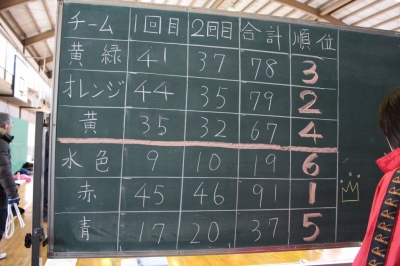 チーム 1回目 2回目 合計 順位
黄緑 41 37 78 3
オレンジ 44 35 79 2
黄 35 32 67 4
水色 9 10 19 6
赤 45 46 91 1
青 17 20 37 5